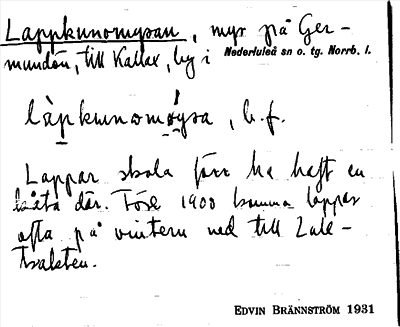 Lappkunomyran, myr på Ger-
mundön, till Kallax, by i Nederluleå sn o. tg. Norrb. l.
làpkunomýra, b.f.
Lappar skola förr ha haft en
kåta där. Före 1900 kommo lappar
ofta på vintern ned till Lule-
trakten.
EDVIN BRÄNNSTRÖM 1931